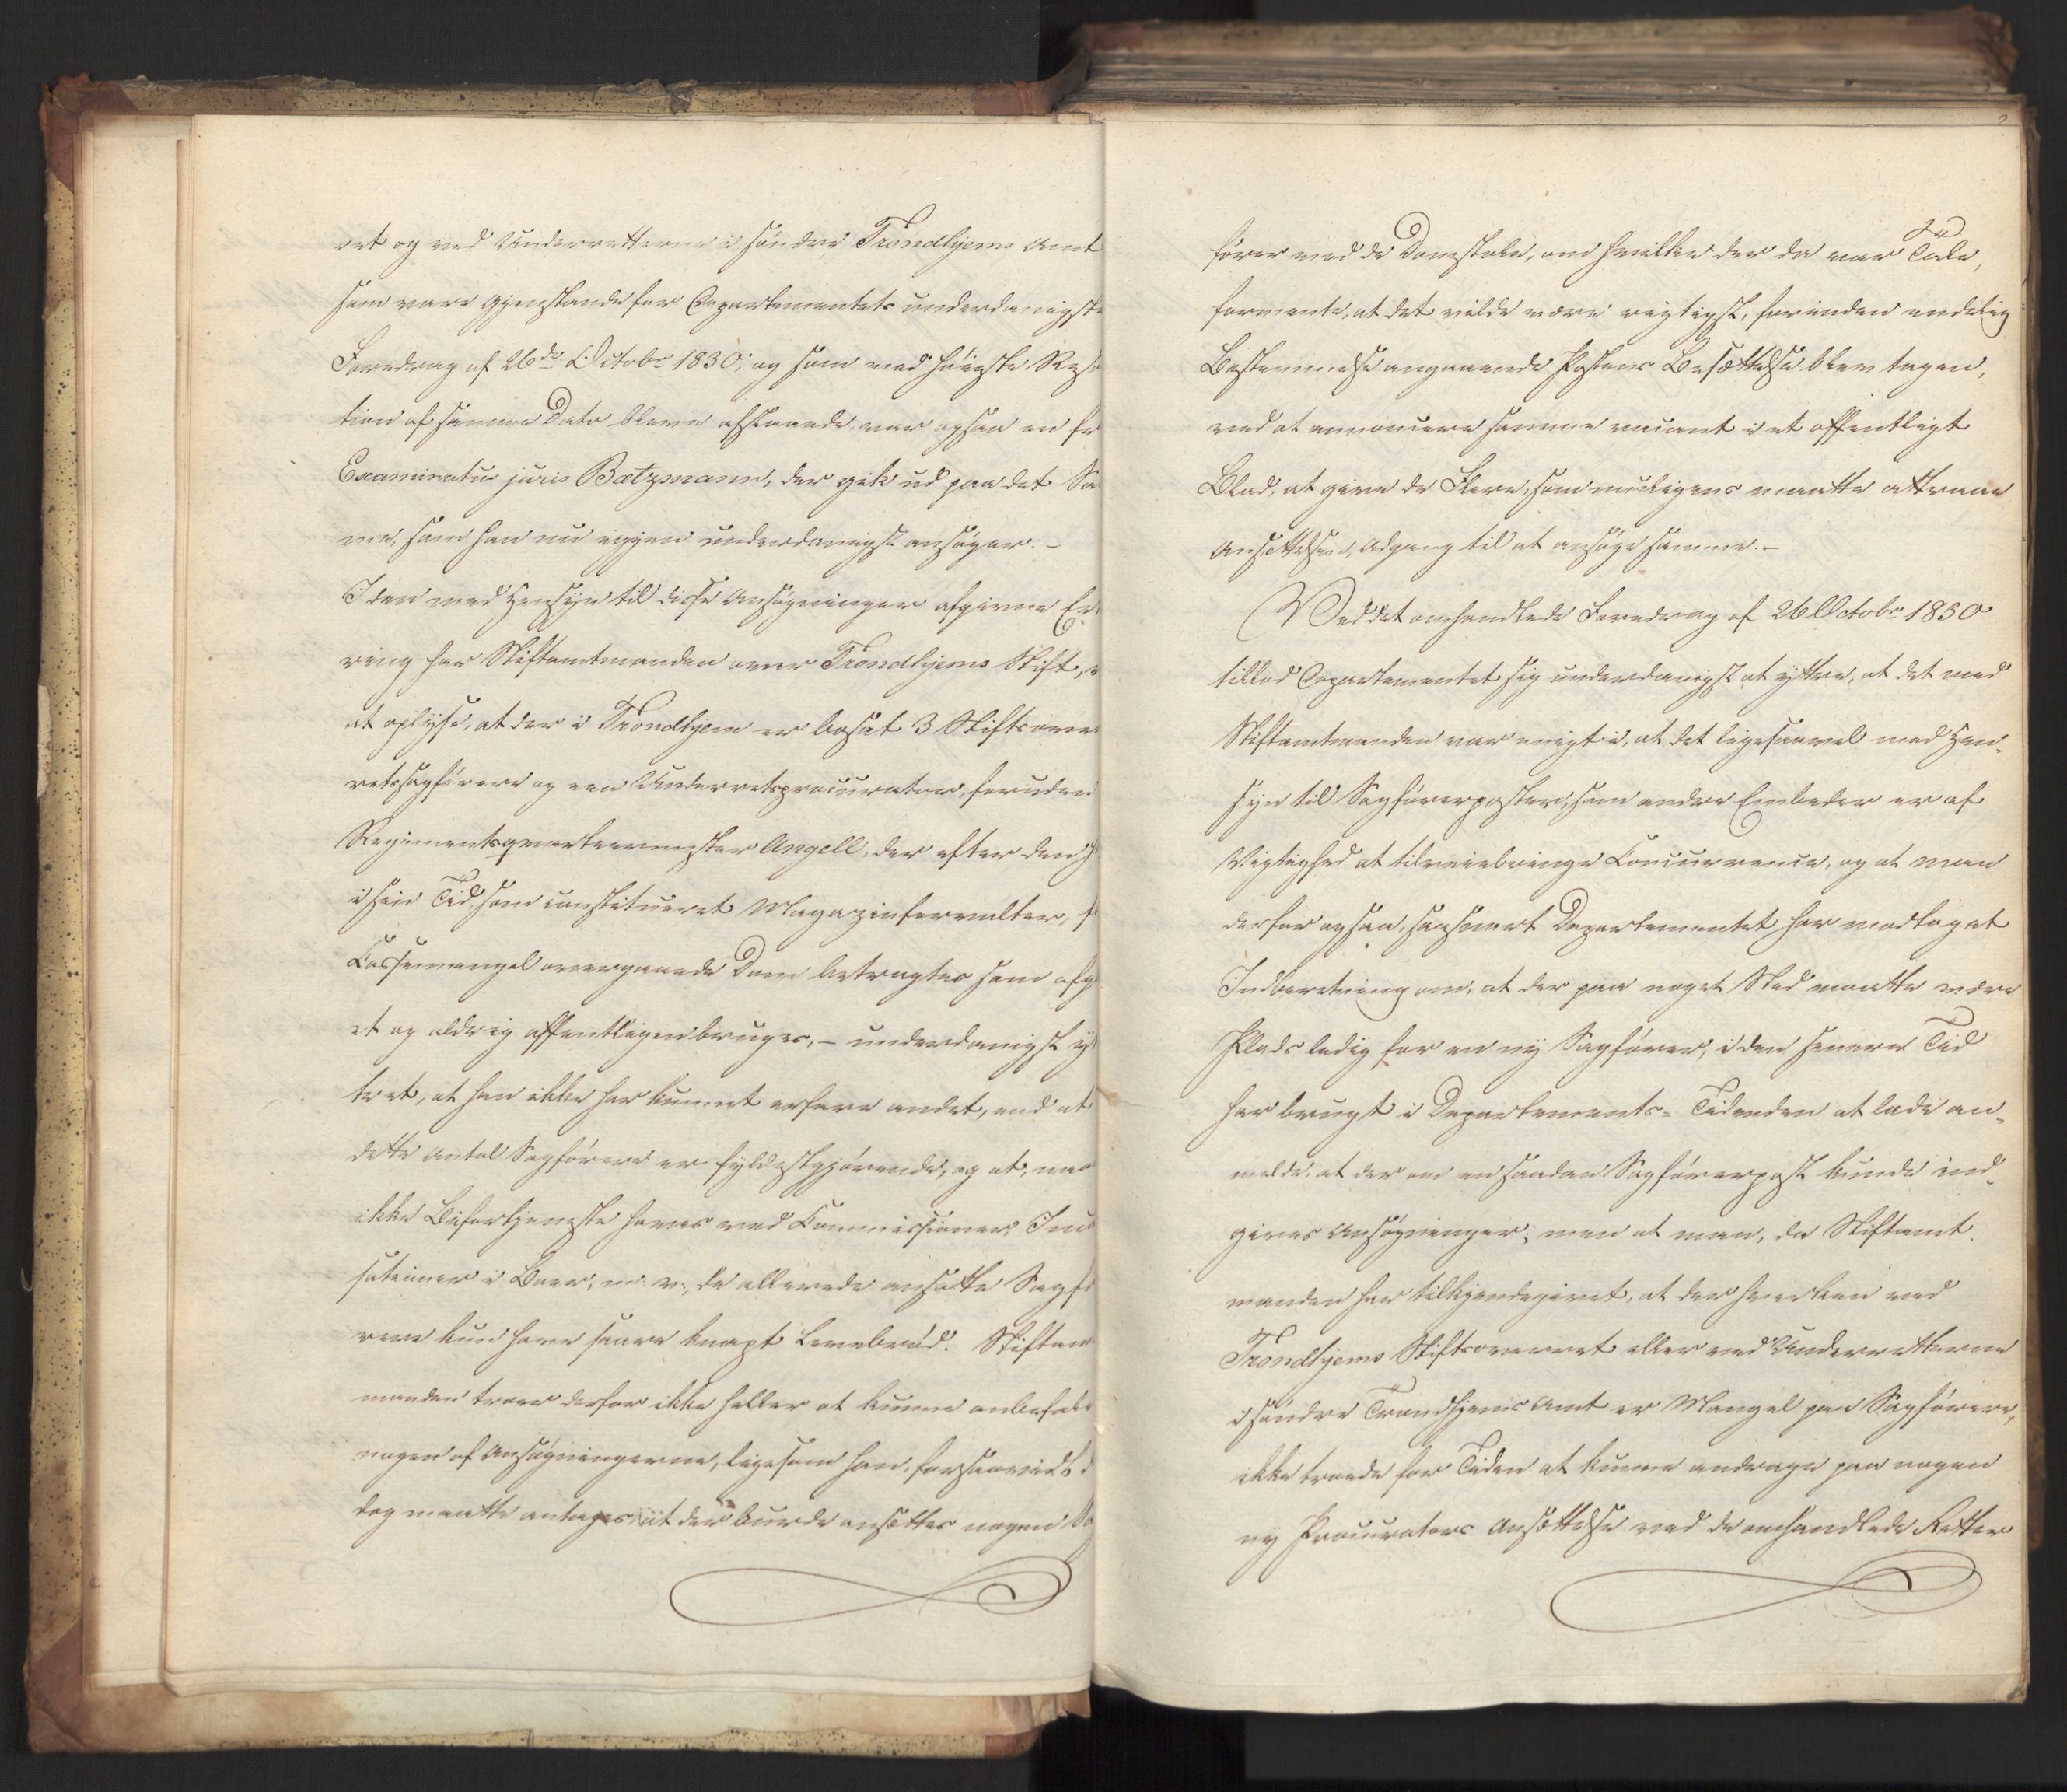 ret og ved Underretterne i søndre Trondhjems Amt
som vare Gjenstande for Departementets underdanigste
Foredrag af 26de Octobr 1830, og som ved høieste Reso
tion af samme Dato bleve afslaaede var ogsaa en fr
Examinatus juris Batzmann, der gik ud paa det Sa
me, som han nu igjen underdanigst ansøger. -
I den med Hensyn til disse Ansøgninger afgivne Er
ring har Stiftamtmanden over Trondhjems Stift,
at oplyse, at der i Trondhjem er bosat 3 Stiftsover
retssagførere og een Underretsprocurator, foruden
Regimentsqvarteermester Angell, der efter den
i sin Tid som constitueret Magazinforvalter, f
Cassemangel overgaaede Dom betragtes som afg
et og aldrig offentligen bruges, - underdanigst y
tret, at han ikke har kunnet erfare andet, end at
dette Antal Sagførere er fyldestgjørende, og at, naar
ikke Bifortjeneste haves ved Commissioner, In
sationer i Boer, m. v., de allerede ansatte Sagfø
rere kun have saare knapt Levebrød. Stiftam
manden troer derfor ikke heller at kunne anbefale
nogen af Ansøgningerne, ligesom han, forsaavidt d
dog maatte antages at der burde ansættes nogen Sa
fører ved de Domstole, om hvilke der da var Tale,
formente, at det vilde være rigtigst, forinden endelig
Bestemmelse angaaende Postens Besættelse blev tagen,
ved at annoncere samme vacant i et offentligt
Blad, at give de Flere, som muligens maatte attraae
Ansættelsen, Adgang til at ansøge samme. -
Ved det omhandlede Foredrag af 26 Octobr 1830
tillod Departementet sig underdanigst at yttre, at det med
Stiftamtmanden var enigt i, at det ligesaavel med Hen-
syn til Sagførerposter, som andre Embeder er af
Vigtighed at tilveiebringe Concurrence, og at man
derfor ogsaa, saasnart Departementet har modtaget
Indberetning om, at der paa noget Sted maatte være
Plads ledig for en ny Sagfører, i den senere Tid
har brugt i Departements-Tidenden at lade an-
melde, at der om en saadan Sagførerpost kunde ind-
gives Ansøgninger; men at man, da Stiftamt-
manden har tilkjendegivet, at der hverken ved
Trondhjems Stiftsoverret eller ved Underretterne
i søndre Trondhjems Amt er Mangel paa Sagførere,
ikke troede for Tiden at kunne andrage paa nogen
ny Procurators Ansættelse ved de omhandlede Retter